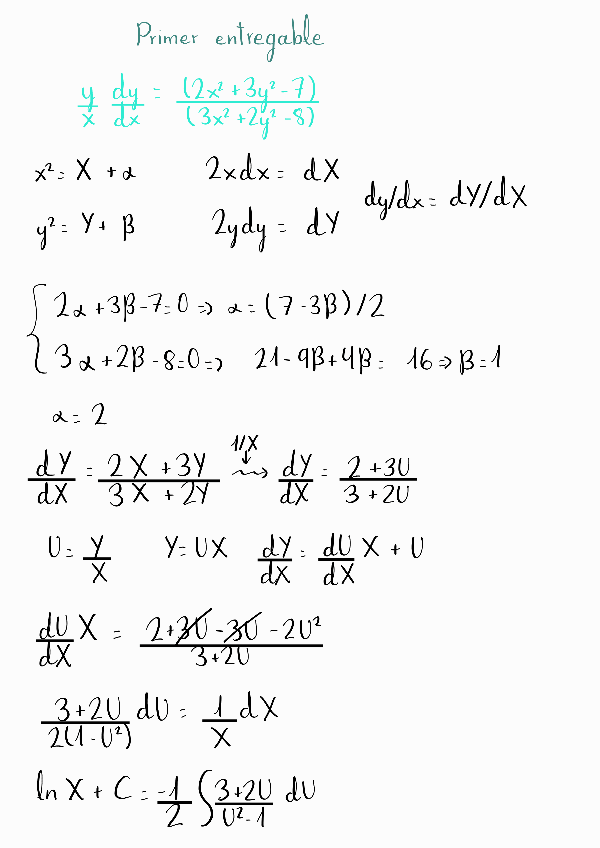 Primer entregable
y/x dy/dx = (2x²+3y²-7)/(3x²+2y²-8)
x² = X + α 2xdx = dX dy/dx = dY/dX
y² = Y + β 2ydy = dY
{ 2α+3β-7=0 => α = (7-3β)/2
3α+2β-8=0 => 21-9β+4β = 16 => β=1
α = 2
1/X
dY/dX = (2X+3Y)/(3X+2Y) ⇝ dY/dX = (2+3U)/(3+2U)
↓
U = Y/X Y = UX dY/dX = dU/dX X + U
dU/dX X = (2+3U-3U-2U²)/(3+2U)
(3+2U)/(2(1-U²)) dU = 1/X dX
ln X + C = -1/2 ∫ (3+2U)/(U²-1) dU